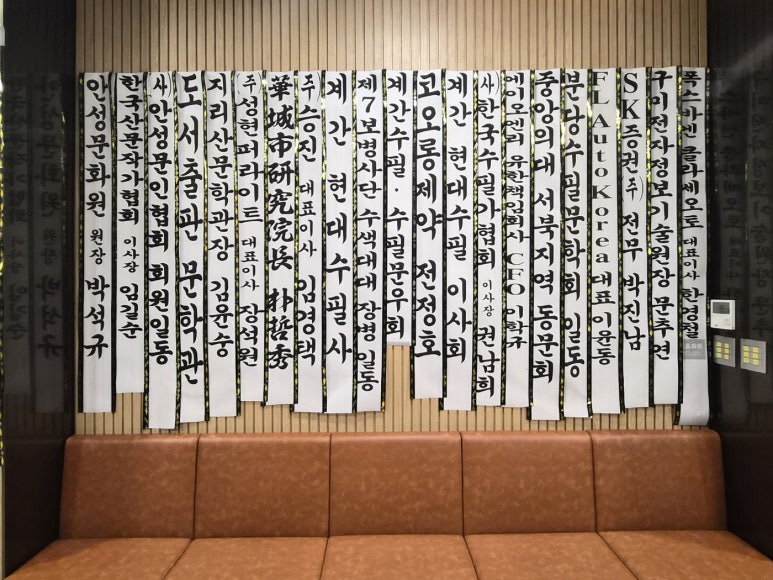 안성문화원 원장 박석규
한국산문작가협회 이사장 임길순
(사)안성문인협회 회원일동
도서출판 문학관
지리산문학관장 김윤숭
(주)성현퍼라이트 대표이사 장석원
華城市硏究院長 朴哲秀
(주)승진 대표이사 임영택
계간 현대수필사
제7보병사단 수색대대 장병 일동
계간수필·수필문우회
코오롱제약 전정호
계간 현대수필 이사회
(사)한국수필가협회 이사장 권남희
에이오엔리 유한책임회사 CFO 이학규
중앙의대 서북지역 동문회
분당수필문학회 일동
FL AutoKorea 대표 이윤동
SK증권(주) 전무 박진남
구미전자정보기술원장 문추연
폭스바겐 클라쎄오토 대표이사 한경철